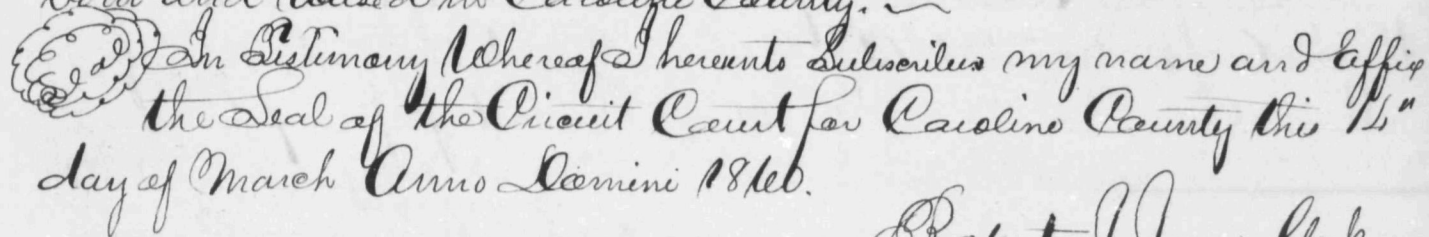 and raised in Caroline County.
In Testimony Whereof I hereunto Subscribe my name and affix
the Seal of the Circuit Court for Caroline County this 14"
day of March Anno Domini 1860.